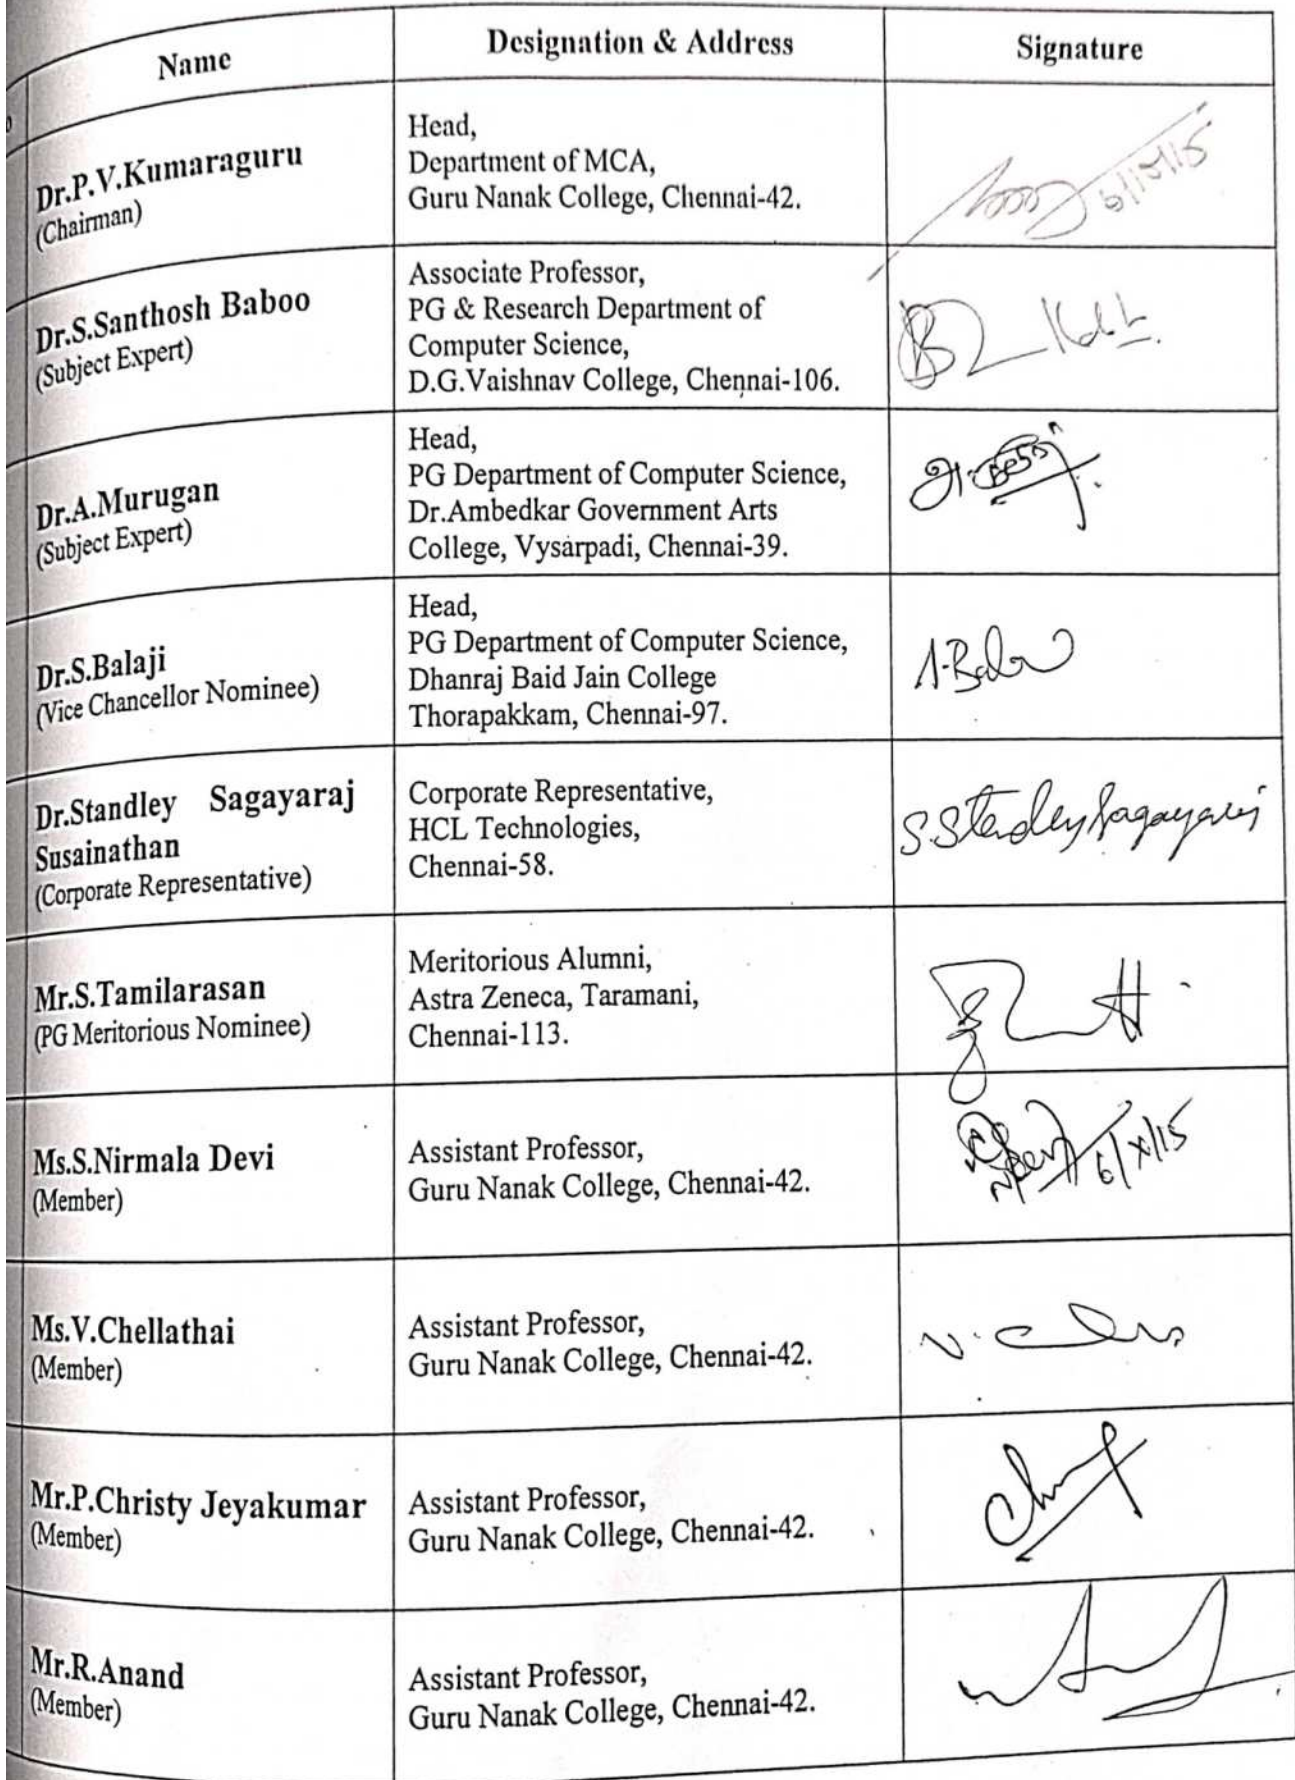 Name
Designation & Address
Signature
Dr.P.V.Kumaraguru
(Chairman)
Head,
Department of MCA,
Guru Nanak College, Chennai-42.
Dr.S.Santhosh Baboo
(Subject Expert)
Associate Professor,
PG & Research Department of
Computer Science,
D.G.Vaishnav College, Chennai-106.
Dr.A.Murugan
(Subject Expert)
Head,
PG Department of Computer Science,
Dr.Ambedkar Government Arts
College, Vysarpadi, Chennai-39.
Dr.S.Balaji
(Vice Chancellor Nominee)
Head,
PG Department of Computer Science,
Dhanraj Baid Jain College
Thorapakkam, Chennai-97.
Dr.Standley Sagayaraj
Susainathan
(Corporate Representative)
Corporate Representative,
HCL Technologies,
Chennai-58.
S.Standley Sagayaraj
Mr.S.Tamilarasan
(PG Meritorious Nominee)
Meritorious Alumni,
Astra Zeneca, Taramani,
Chennai-113.
Ms.S.Nirmala Devi
(Member)
Assistant Professor,
Guru Nanak College, Chennai-42.
6/X/15
Ms.V.Chellathai
(Member)
Assistant Professor,
Guru Nanak College, Chennai-42.
Mr.P.Christy Jeyakumar
(Member)
Assistant Professor,
Guru Nanak College, Chennai-42.
Mr.R.Anand
(Member)
Assistant Professor,
Guru Nanak College, Chennai-42.